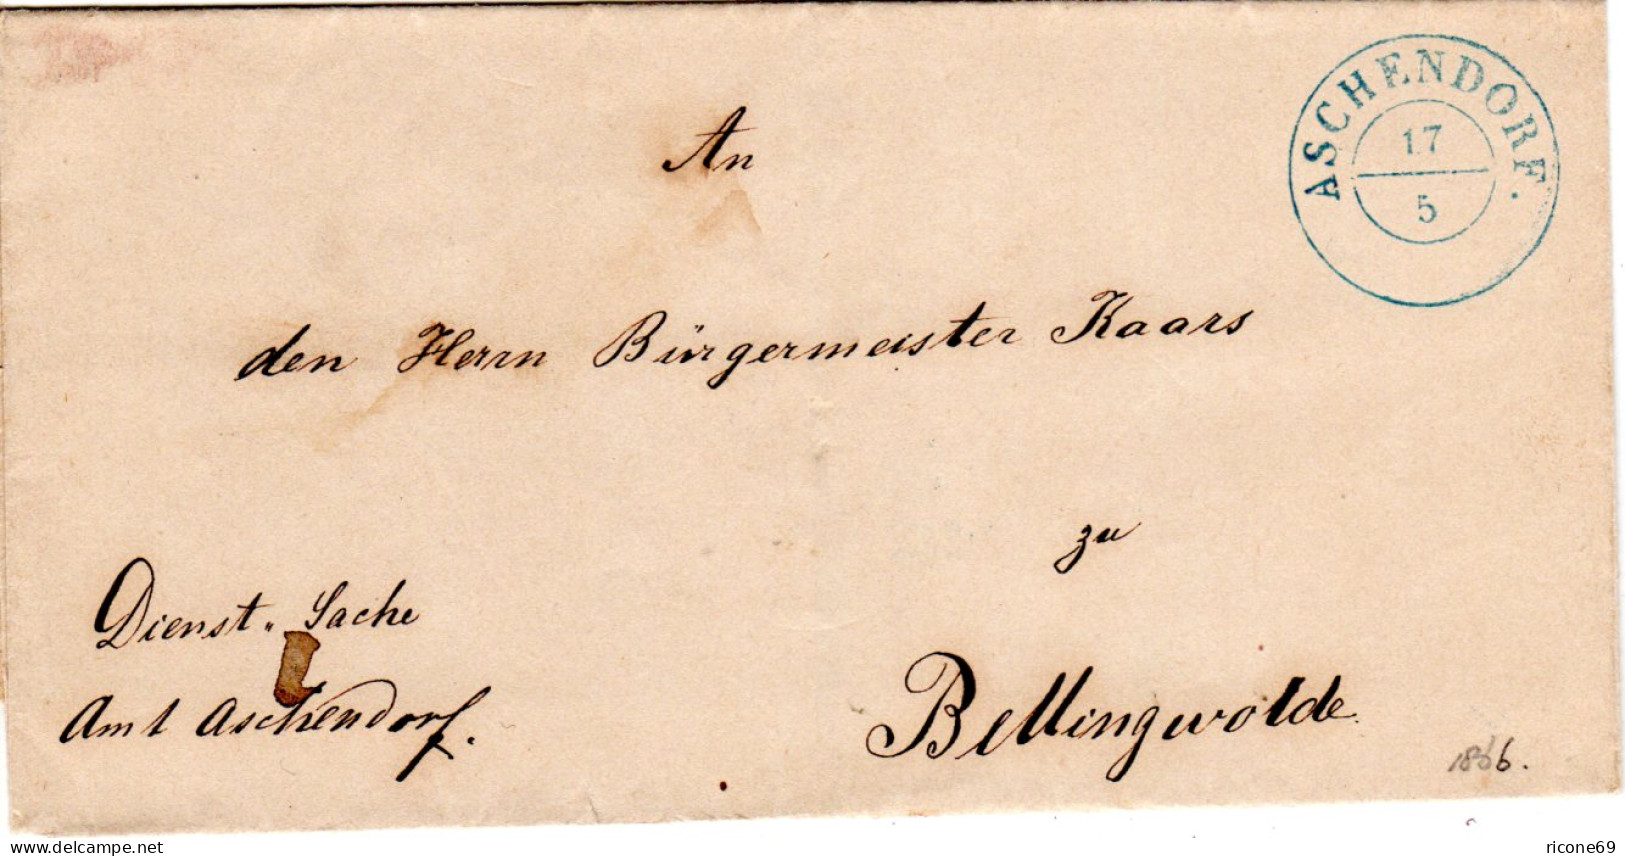 ASCHENDORF.
17
5
An
den Herrn Bürgermeister Kaars
zu
Bellingwolde
Dienst„ Sache
Amt Aschendorf.
1866.
www.delcampe.net
ricone69